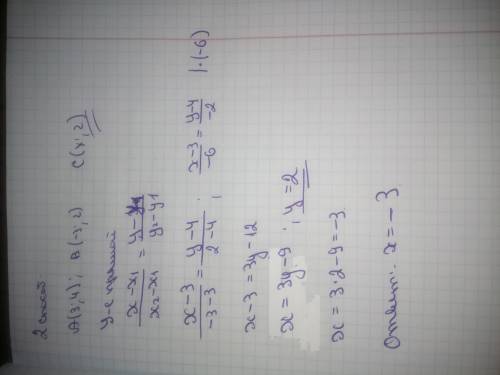 2 способ
A(3;4); B(-3;2) C(x;2)
Ур-е прямой
x-x1/x2-x1 = y-y1/y2-y1
x-3/-3-3 = y-4/2-4 ; x-3/-6 = y-4/-2 | ·(-6)
x-3=3y-12
x=3y-9 ; y=2
x=3·2-9=-3
Ответ: x=-3